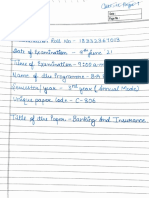 Date:
Page No:
Examination Roll No - 18332367013
Date of Examination - 8th June 21
Time of Examination - 9:00 a.m
Name of the Programme - BA
Semester/ year - 3rd year (Annual Mode)
Unique paper Code - C-306
Title of the Paper - Banking And Insurance